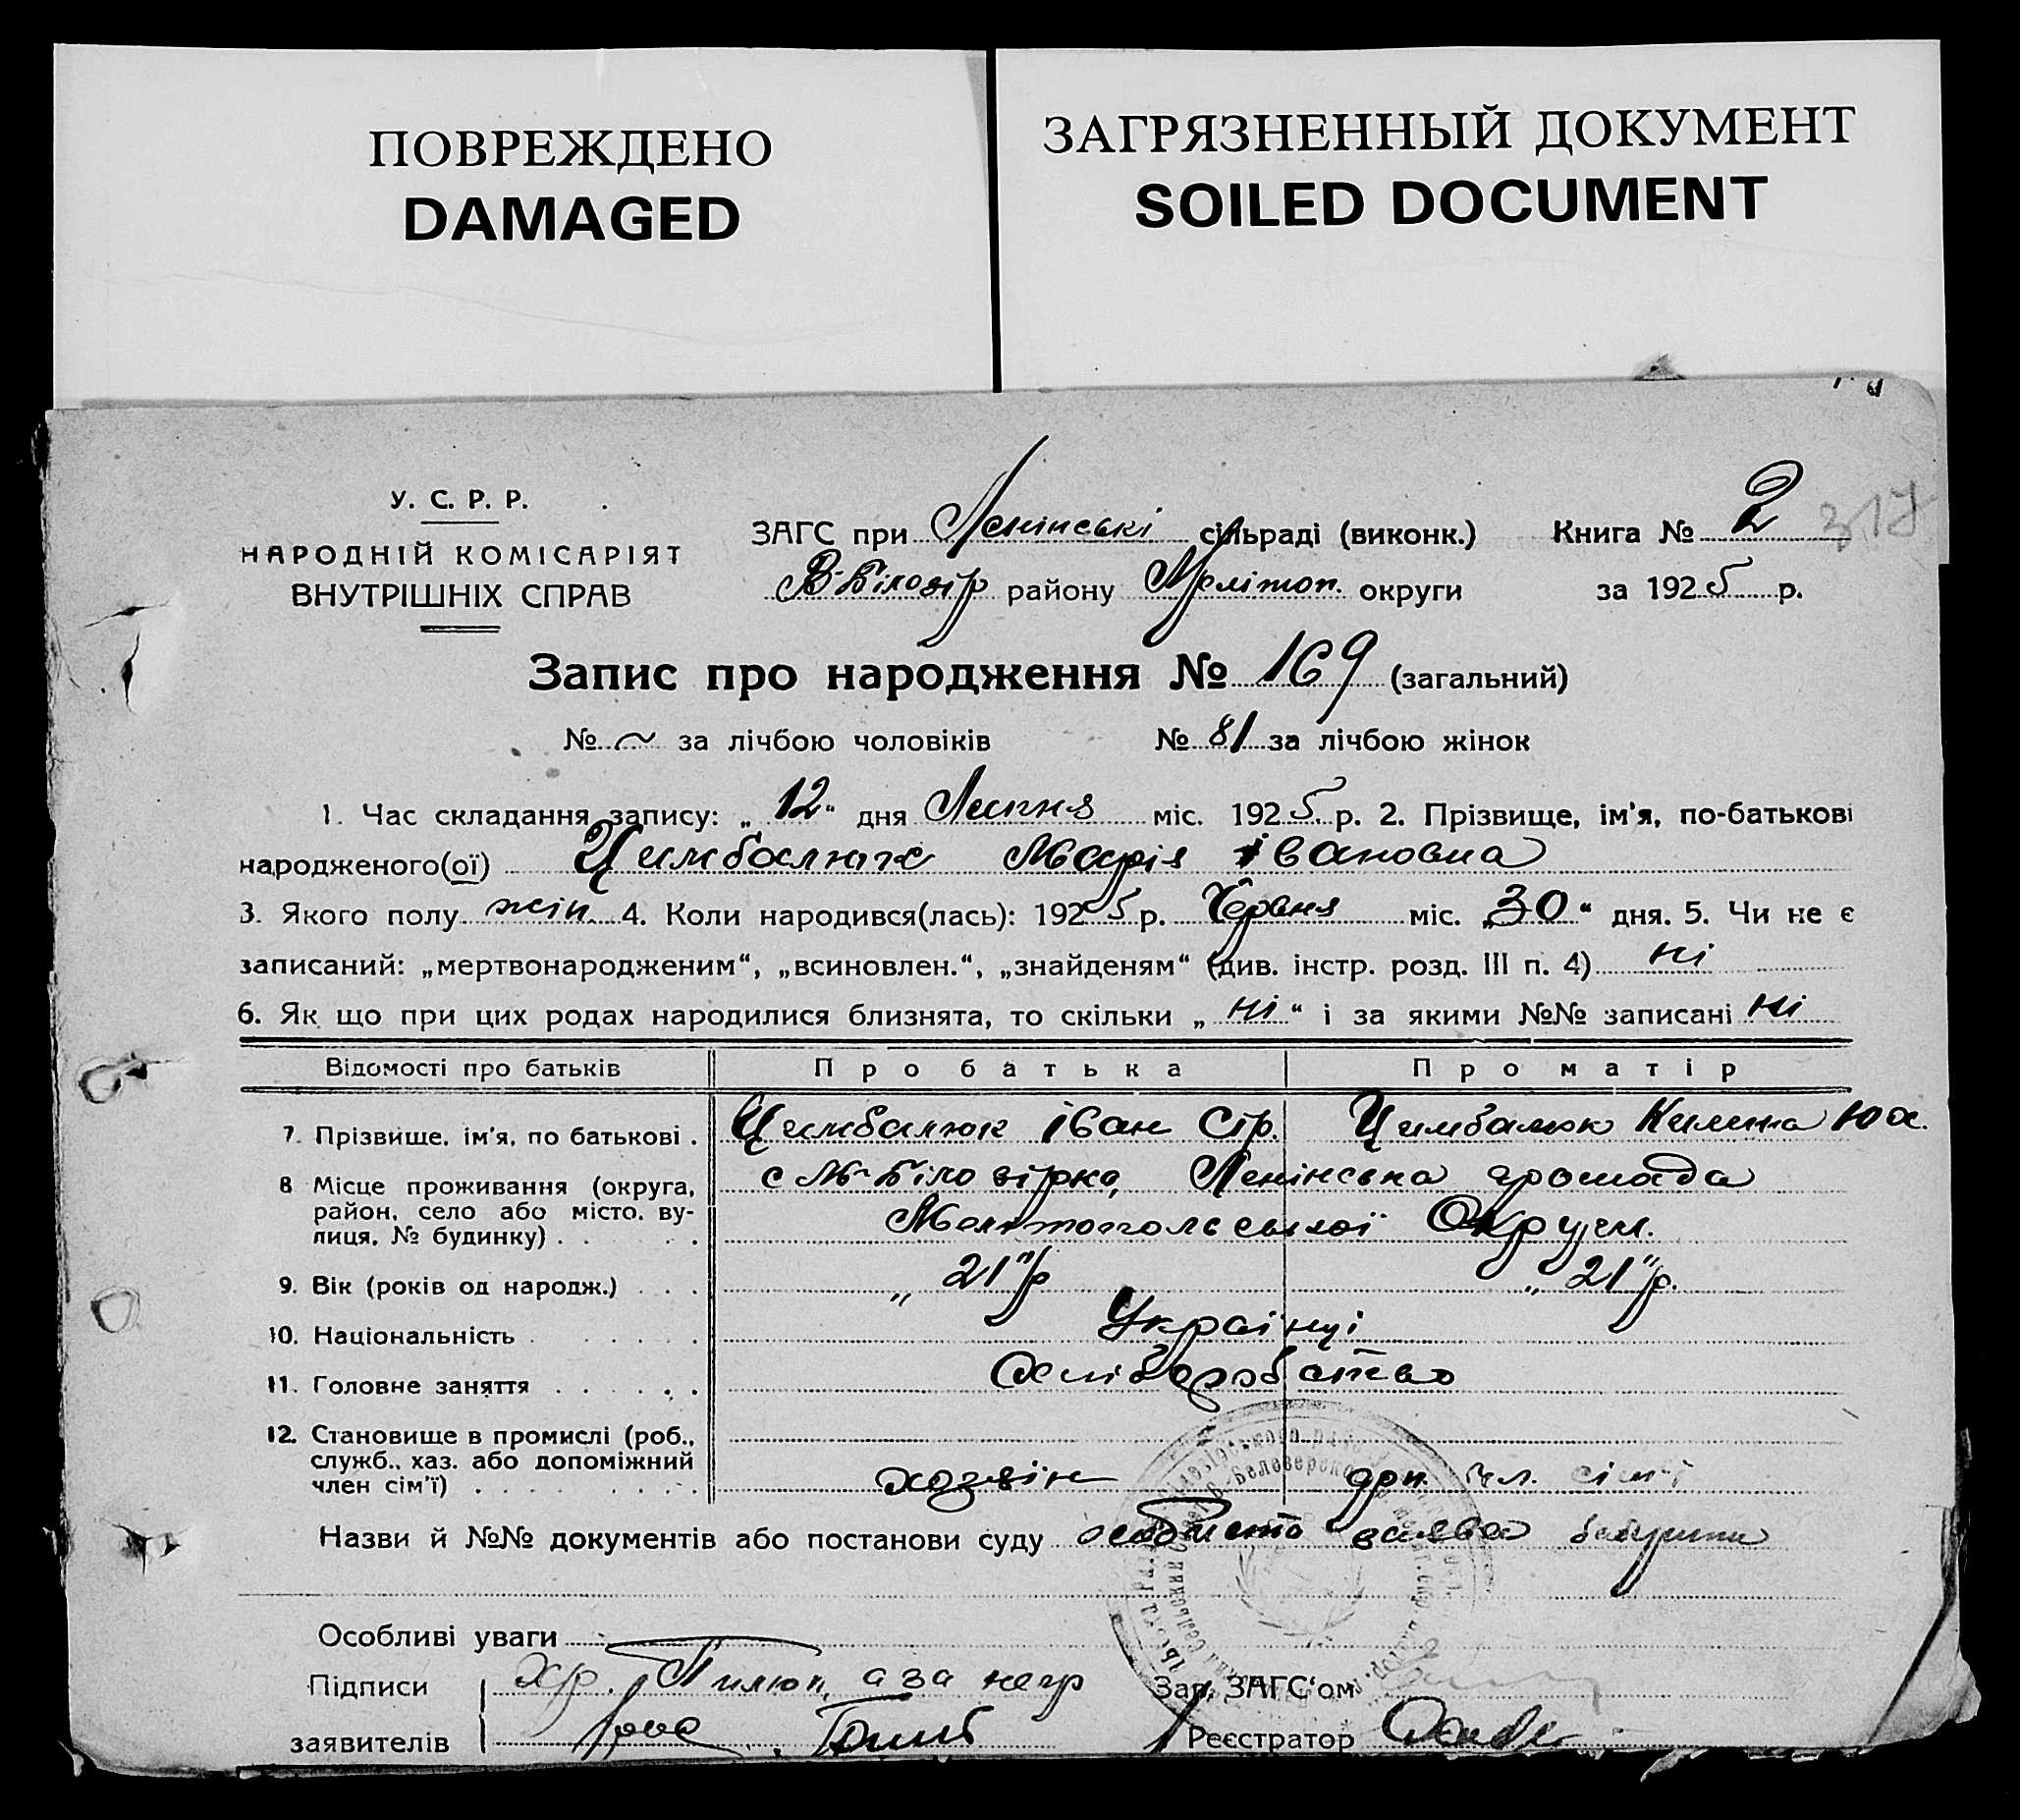 ПОВРЕЖДЕНО
DAMAGED
ЗАГРЯЗНЕННЫЙ ДОКУМЕНТ
SOILED DOCUMENT
У. С. Р. Р.
НАРОДНІЙ КОМІСАРІЯТ
ВНУТРІШНІХ СПРАВ
ЗАГС при Ленінські сільраді (виконк.) Книга № 2 317
В-Білозір району Меліт​оп. округи за 1925 р.
Запис про народження № 169 (загальний)
№ ~ за лічбою чоловіків № 81 за лічбою жінок
1. Час складання запису: „ 12 “ дня Липня міс. 1925 р. 2. Прізвище, ім'я, по-батькові
народженого(ої) Цимбалюк Марія івановна
3. Якого полу жін. 4. Коли народився(лась): 1925 р. Червня міс. „30“ дня. 5. Чи не є
записаний: „мертвонародженим“, „всиновлен.“, „знайденям“ (див. інстр. розд. III п. 4) ні
6. Як що при цих родах народилися близнята, то скільки „ ні “ і за якими №№ записані ні
Відомості про батьків Про батька Про матір
7. Прізвище, ім'я, по батькові . Цимбалюк іван Цимбалюк
8 Місце проживання (округа, район, село або місто, вулиця, № будинку) . . . . . с М-Білозірка, Ленінська громада
Мелітопольської Округи.
9. Вік (років од народж.) . . . „ 21 “ р „ 21 “ р.
10. Національність . . . . . . Українці
11. Головне заняття . . . . . . хліборобство
12. Становище в промислі (роб., служб., хаз. або допоміжний член сім'ї) . . . . . . . . хозяїн доп. чл. сімї
Назви й №№ документів або постанови суду особиста заява
Особливі уваги
Підписи а за негр Зав. ЗАГС'ом
заявителів Реєстратор